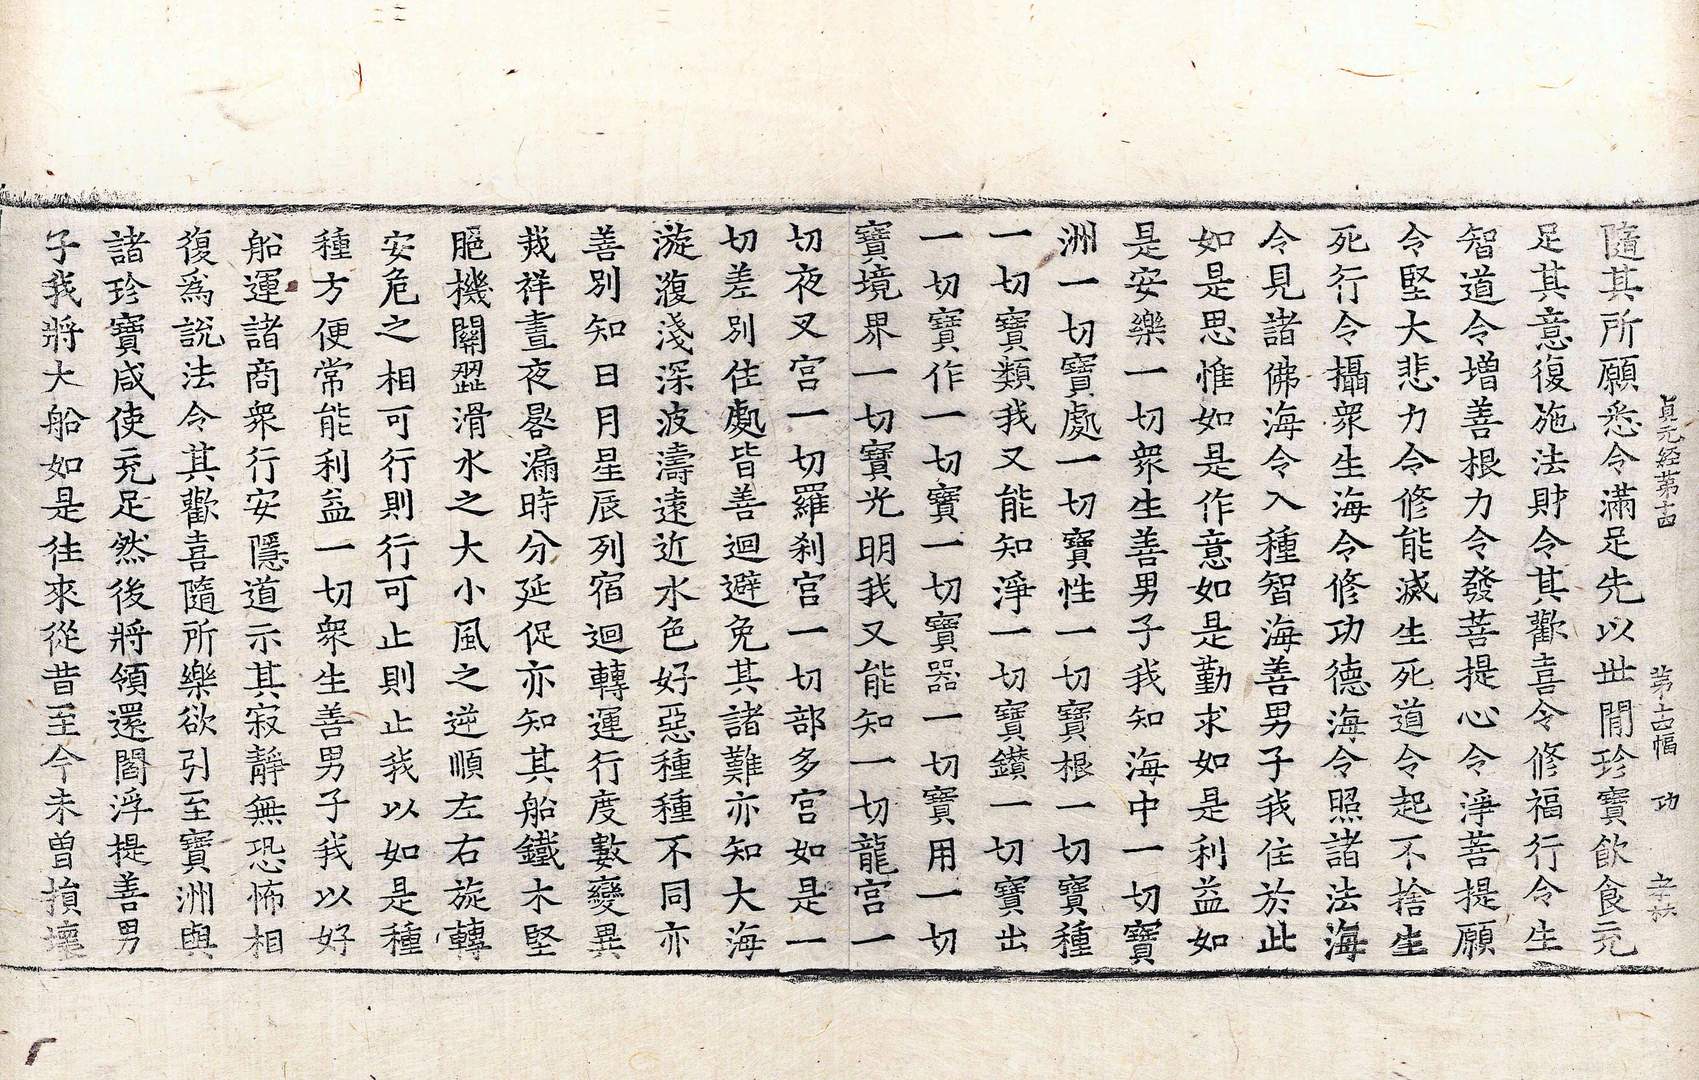 貞元経苐十四　苐十四幅　功
隨其所願悉令滿足先以世閒珍寶飮食充
足其意復施法財令其歡喜令修福行令生
智道令增善根力令發菩提心令淨菩提願
令堅大悲力令修能滅生死道令起不捨生
死行令攝衆生海令修功德海令照諸法海
令見諸佛海令入種智海善男子我住於此
如是思惟如是作意如是勤求如是利益如
是安樂一切衆生善男子我知海中一切寶
洲一切寶處一切寶性一切寶根一切寶種
一切寶類我又能知淨一切寶鑚一切寶出
一切寶作一切寶一切寶器一切寶用一切
寶境界一切寶光明我又能知一切龍宮一
切夜叉宮一切羅刹宮一切部多宮如是一
切差別住處皆善迴避免其諸難亦知大海
漩澓淺深波濤遠近水色好惡種種不同亦
善別知日月星辰列宿迴轉運行度數變異
烖祥晝夜晷漏時分延促亦知其船鐵木堅
脃機關澀滑水之大小風之逆順左右旋轉
安危之相可行則行可止則止我以如是種
種方便常能利益一切衆生善男子我以好
船運諸商衆行安隱道示其寂靜無恐怖相
復爲說法令其歡喜隨所樂欲引至寶洲與
諸珍寶咸使充足然後將領還閻浮提善男
子我將大船如是往來從昔至今未曽損壞